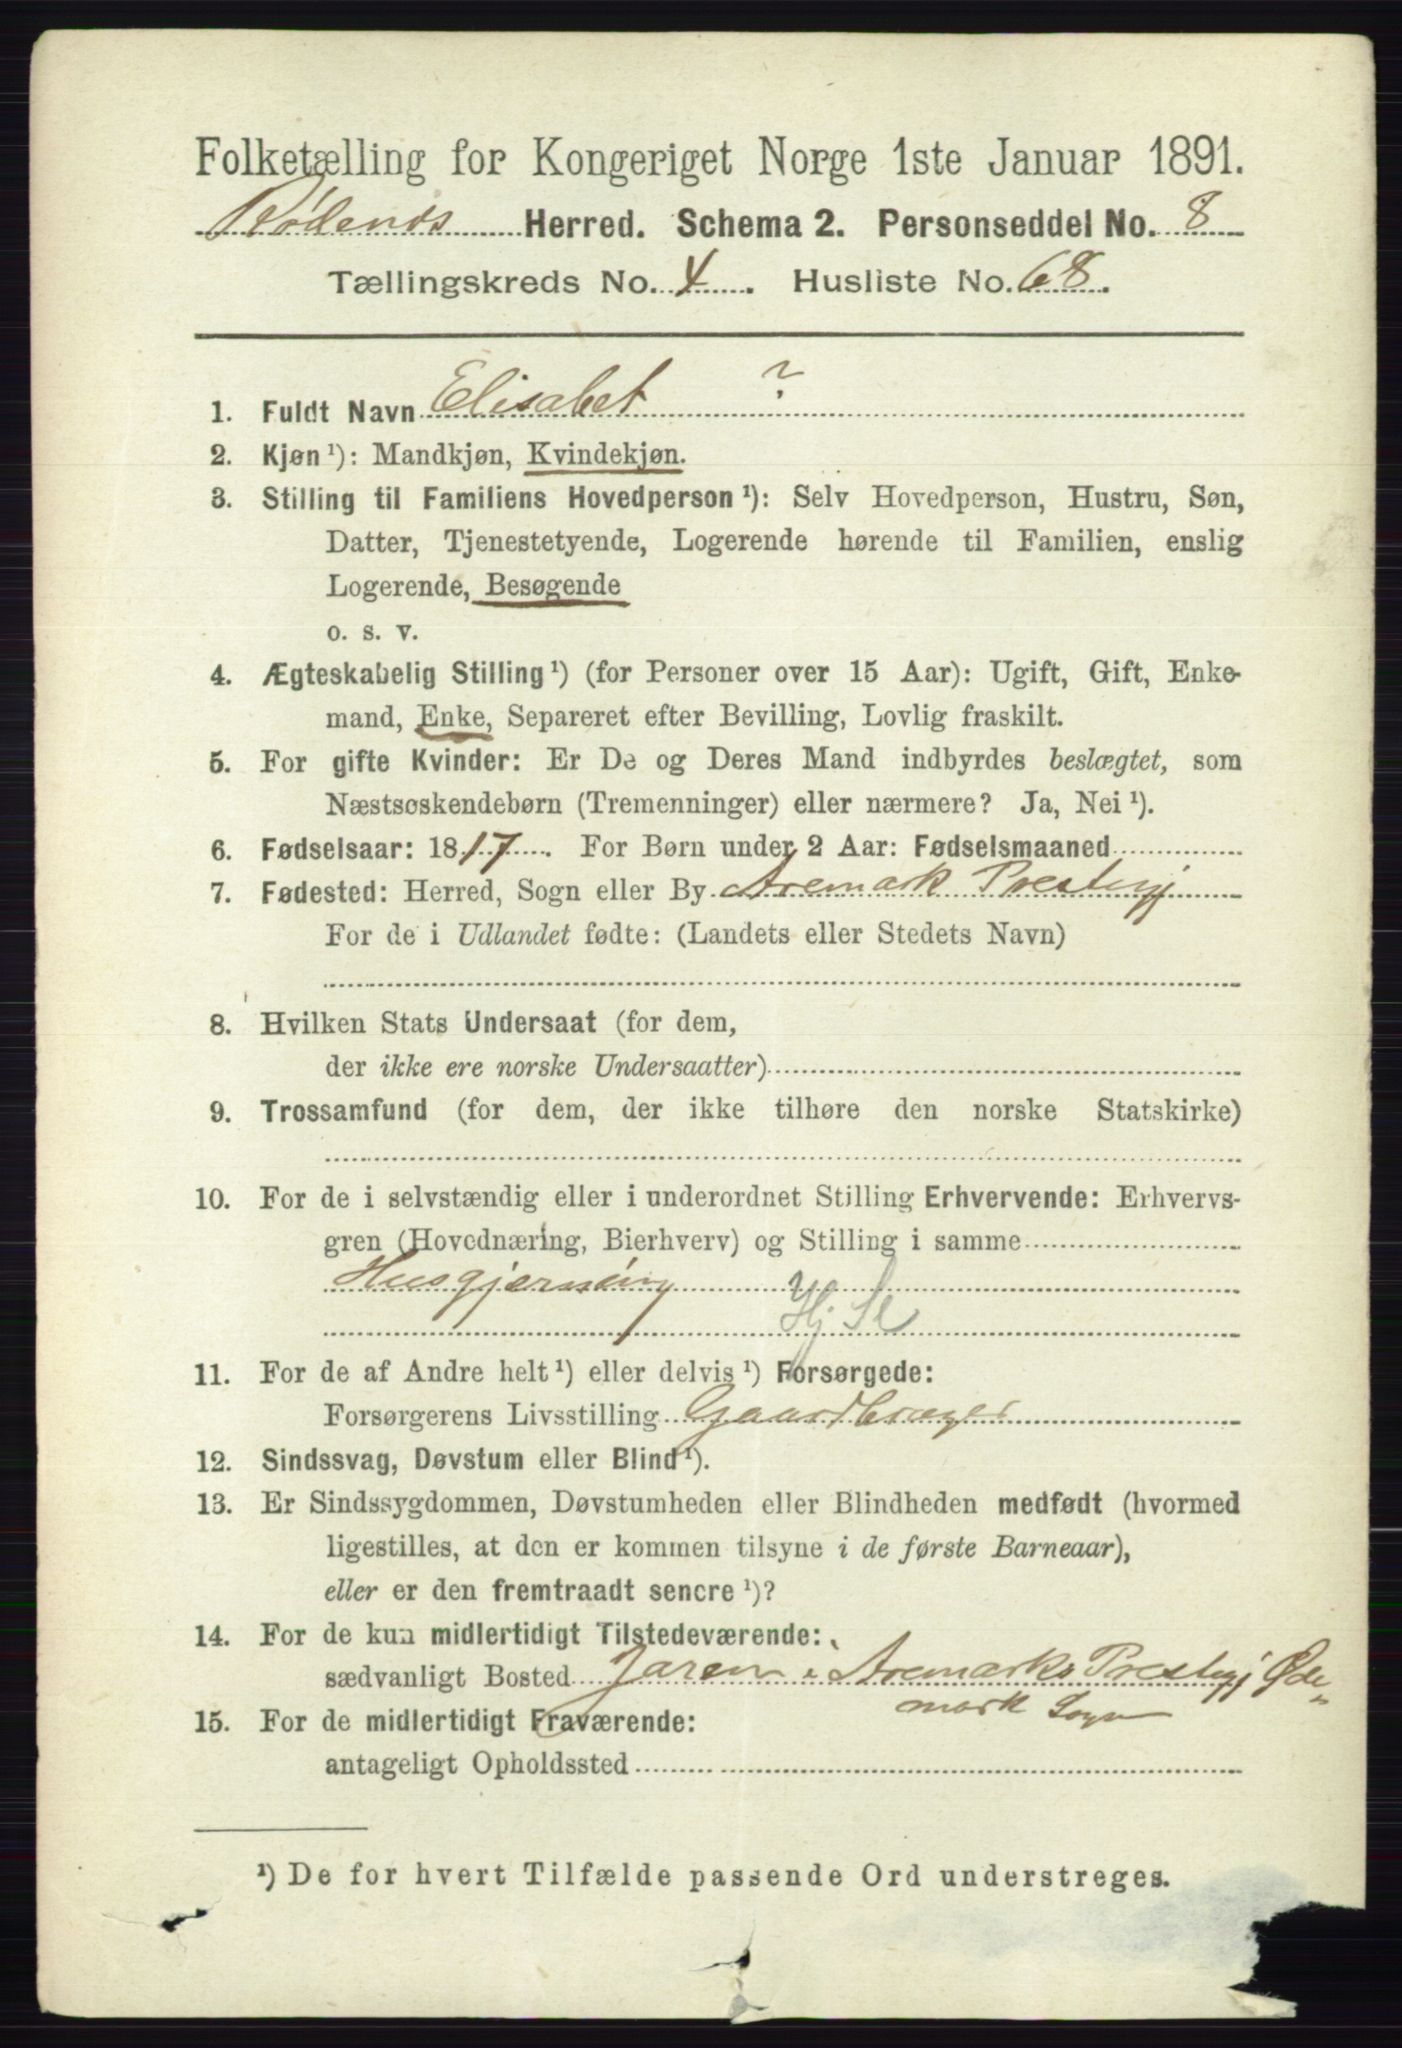 Folketælling for Kongeriget Norge 1ste Januar 1891.
Rødenæs Herred. Schema 2. Personseddel No. 8
Tællingskreds No. 4. Husliste No. 68.
1. Fuldt Navn Elisabet ?
2. Kjøn ¹): Mandkjøn, Kvindekjøn.
3. Stilling til Familiens Hovedperson ¹): Selv Hovedperson, Hustru, Søn,
Datter, Tjenestetyende, Logerende hørende til Familien, enslig
Logerende, Besøgende
o. s. v.
4. Ægteskabelig Stilling ¹) (for Personer over 15 Aar): Ugift, Gift, Enke-
mand, Enke, Separeret efter Bevilling, Lovlig fraskilt.
5. For gifte Kvinder: Er De og Deres Mand indbyrdes beslægtet, som
Næstsøskendebørn (Tremenninger) eller nærmere? Ja, Nei ¹).
6. Fødselsaar: 1817. For Børn under 2 Aar: Fødselsmaaned
7. Fødested: Herred, Sogn eller By Aremark Prestegj
For de i Udlandet fødte: (Landets eller Stedets Navn)
8. Hvilken Stats Undersaat (for dem,
der ikke ere norske Undersaatter)
9. Trossamfund (for dem, der ikke tilhøre den norske Statskirke)
10. For de i selvstændig eller i underordnet Stilling Erhvervende: Erhvervs-
gren (Hovednæring, Bierhverv) og Stilling i samme
Husgjerning Hj Sl
11. For de af Andre helt ¹) eller delvis ¹) Forsørgede:
Forsørgerens Livsstilling Gaardbruger
12. Sindssvag, Døvstum eller Blind ¹).
13. Er Sindssygdommen, Døvstumheden eller Blindheden medfødt (hvormed
ligestilles, at den er kommen tilsyne i de første Barneaar),
eller er den fremtraadt senere ¹)?
14. For de kun midlertidigt Tilstedeværende:
sædvanligt Bosted Jaren i Aremarks Prestegj Øde-
mark Sogn
15. For de midlertidigt Fraværende:
antageligt Opholdssted
¹) De for hvert Tilfælde passende Ord understreges.